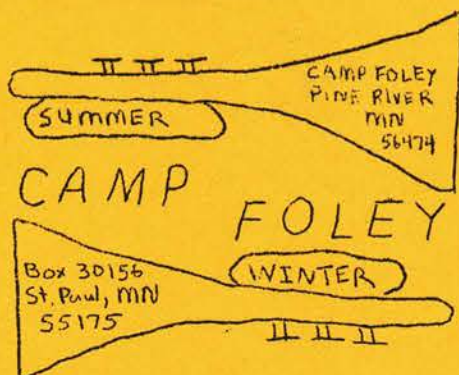 SUMMER
CAMP FOLEY
PINE RIVER
MN
56474
CAMP
FOLEY
Box 30156
St. Paul, MN
55175
WINTER